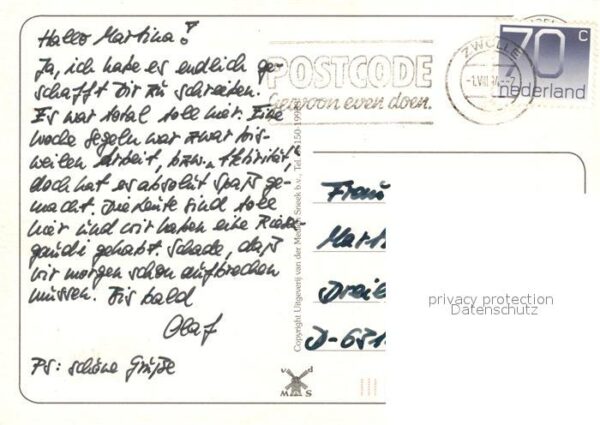 Hallo Martina!
Ja, ich habe es endlich ge-
schafft Dir zu schreiben.
Es war total toll hier. Eine
Woche Segeln war zwar bis-
weilen Arbeit, bzw. Aktivität,
doch hat es absolut Spaß ge-
macht. Die Leute sind toll
hier und wir haben eine Riesen-
gaudi gehabt. Schade, daß
wir morgen schon aufbrechen
müssen. Bis bald
Olaf
PS: schöne Grüße
POSTCODE
Gewoon even doen.
ZWOLLE
70 c
nederland
Copyright Uitgeverij van der Meulen Sneek b.v., Tel.
Frau
Marti
Dreie
D-631
privacy protection
Datenschutz
v d
M S